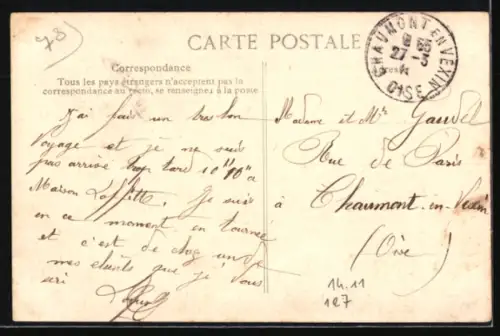 78)
CARTE POSTALE
Correspondance
Tous les pays étrangers n'acceptent pas la
correspondance au recto, se renseigner à la poste
CHAUMONT-EN-VEXIN
27-3
OISE
J'ai fait un tres bon
voyage et je ne suis
pas arrivé trop tard 10"10" à
Maison Laffitte. Je suis
en ce moment en tournée
et c'est de chez un de
mes clients que je vous
Madame et Mr Gaudel
Rue de Paris
à Chaumont-en-Vexin
(Oise)
14.11
127